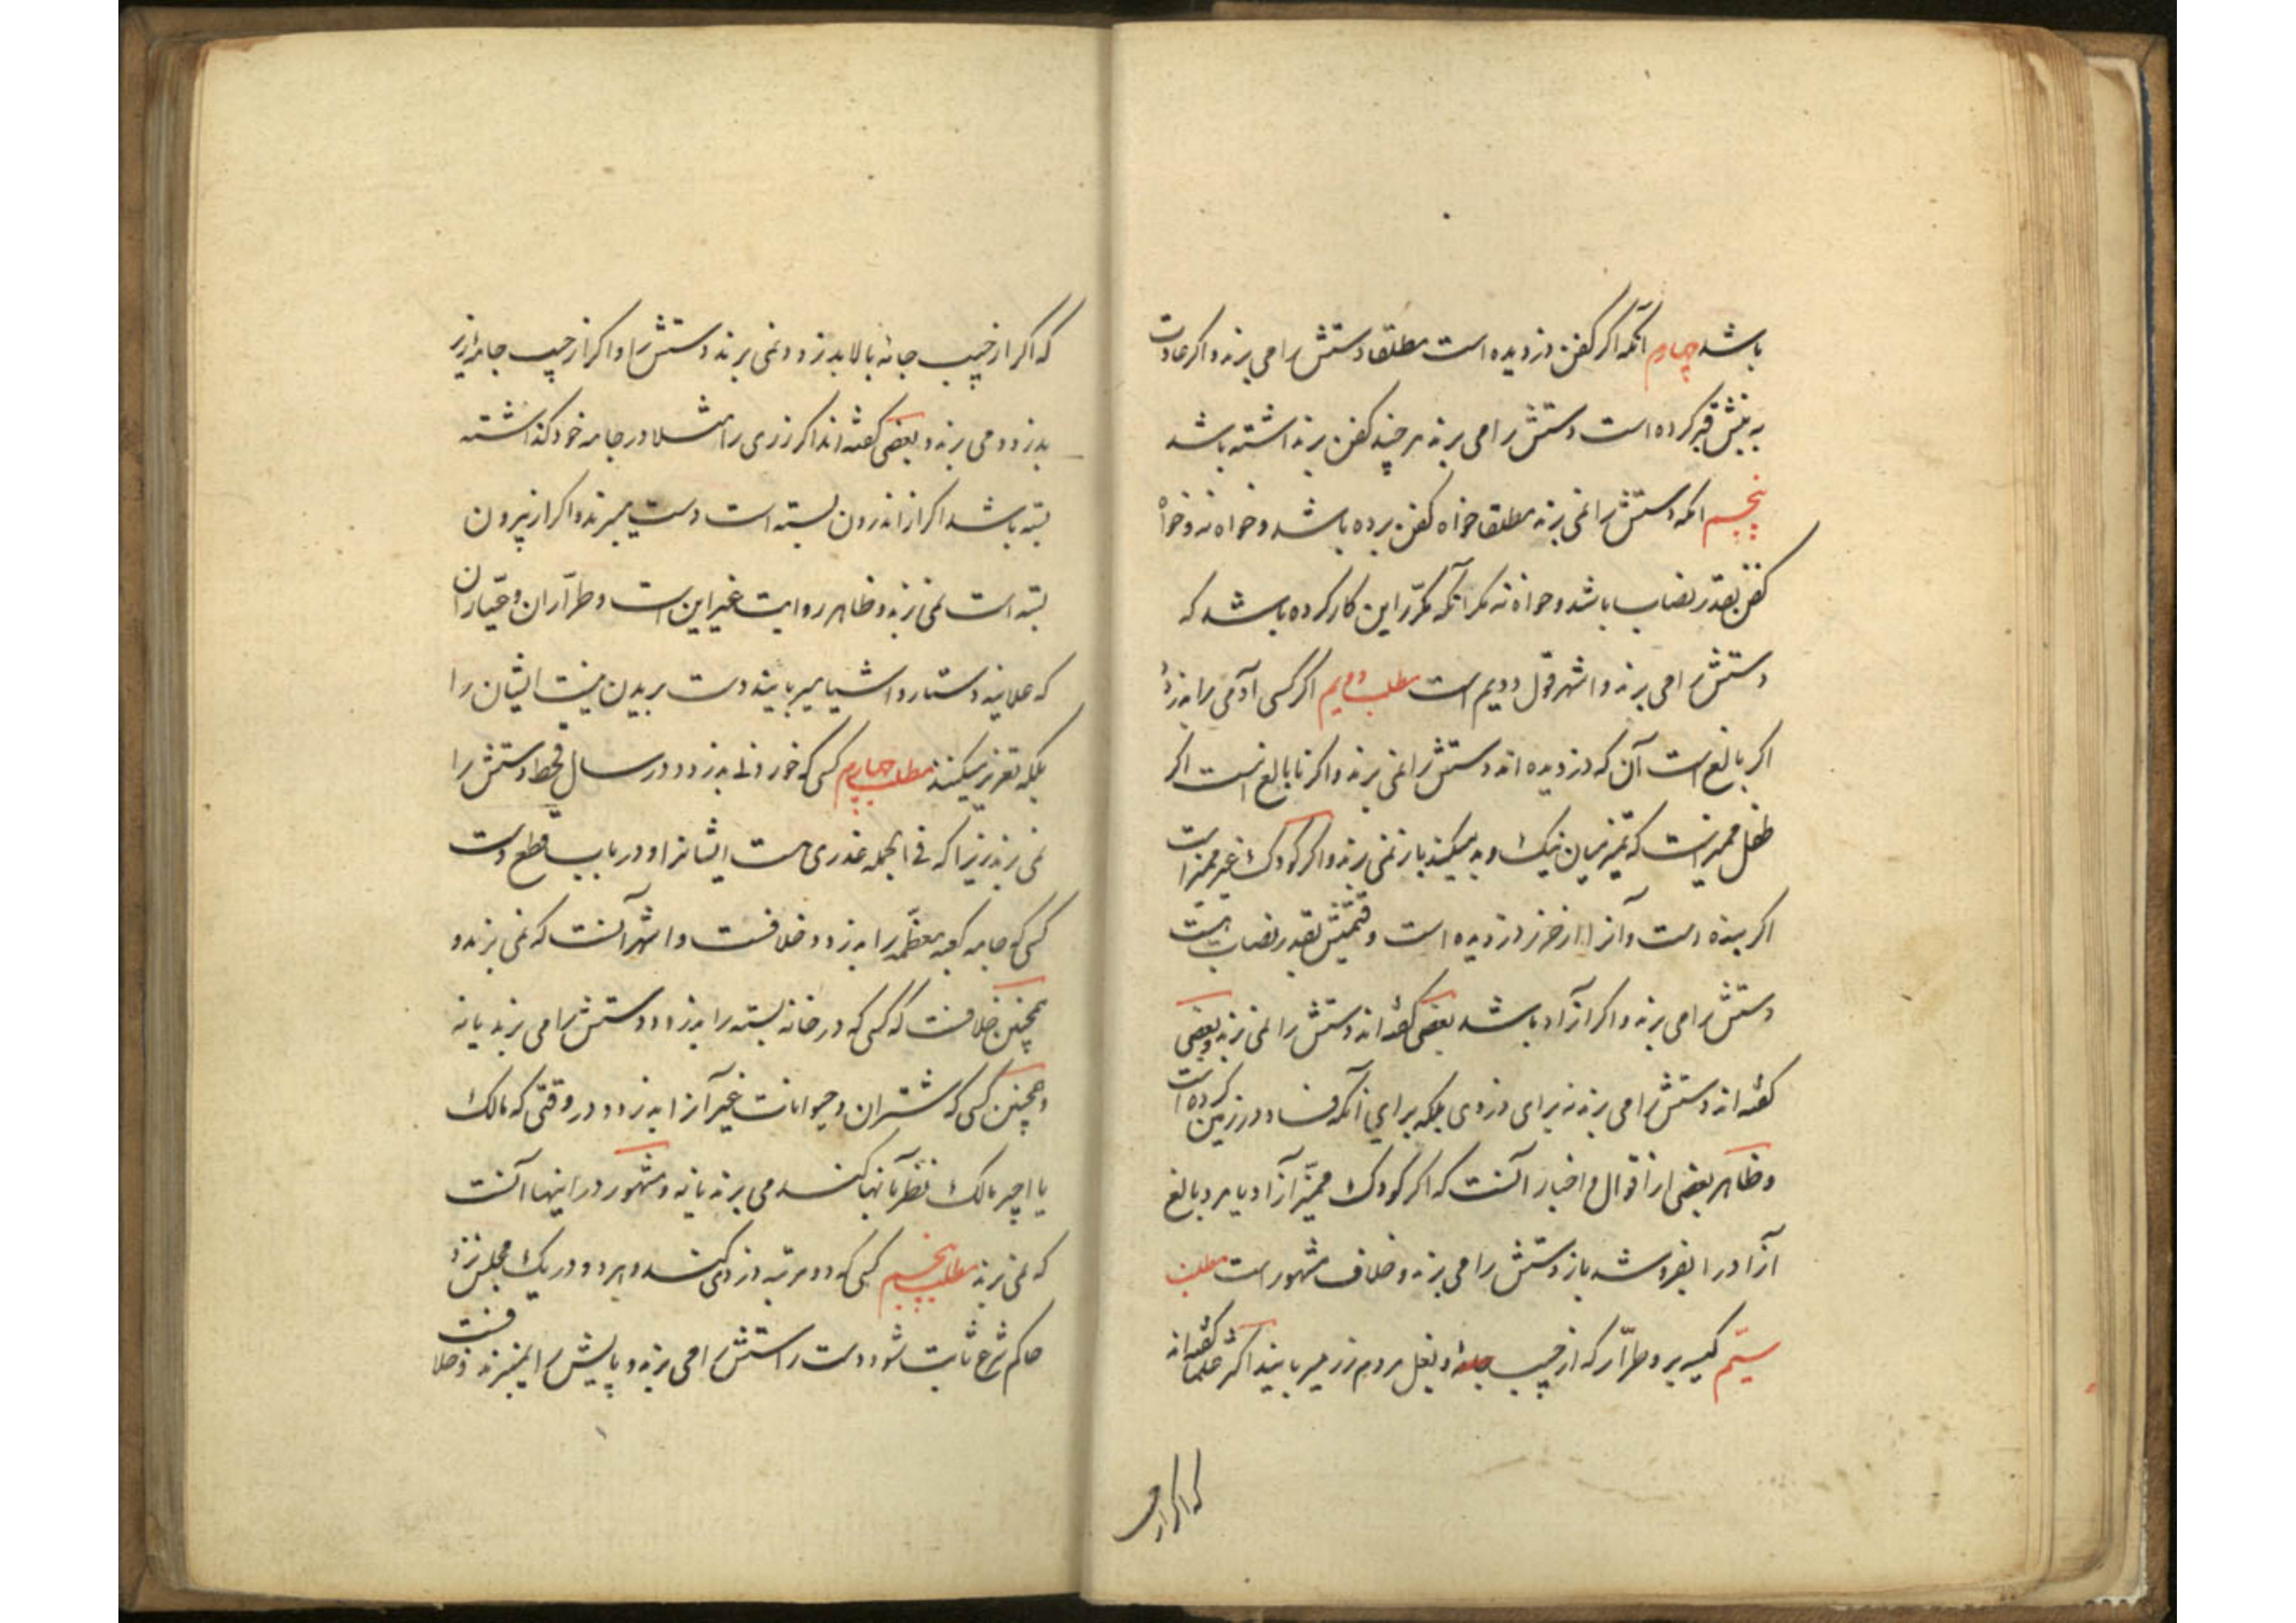 باشد چهارم آنکه اگر کفن دزدیده است مطلقا دستش را می برند و اگر عادت
به نبش قبر کرده است دستش را می برند هر چند کفن برنداشته باشد
پنجم آنکه دستش را نمی برند مطلقا خواه کفن برده باشد و خواه نه و خواه
کفن بقدر نصاب باشد و خواه نه مگر آنکه مکرّر این کار کرده باشد که
دستش را می برند و اشهر قول دویم است مطلب دویم اگر کسی آدمی را بدزدد
اگر بالغ است آن که دزدیده اند دستش را نمی برند و اگر نابالغ است اگر
طفل ممیز است که تمیز میان نیک و بد میکند باز نمی برند و اگر کودک غیر ممیز است
اگر بنده است و آنرا از حرز دزدیده است و قیمتش بقدر نصاب هست
دستش را می برند و اگر آزاد باشد بعضی گفته اند دستش را نمی برند و بعضی
گفته اند دستش را می برند نه برای دزدی بلکه برای آنکه فساد در زمین کرده است
و ظاهر بعضی از اقوال و اخبار آنست که اگر کودک ممیّز آزاد یا مرد بالغ
آزاد را بفروشد باز دستش را می برند و خلاف مشهور است مطلب
سیّم کیسه بر و طرّار که از جیب و بغل مردم زر میربایند اکثر علما گفته اند
که اگر از
که اگر از جیب جامهٔ بالا بدزدد نمی برند دستش را و اگر از جیب جامه زیر
بدزدد می برند و بعضی گفته اند اگر زری را مثلا در جامه خود گذاشته
بسته باشد اگر از اندرون بسته است دست میبرند و اگر از بیرون
بسته است نمی برند و ظاهر روایت غیر این است و طرّاران و عیّاران
که علانیه دستار و اشیا میربایند دست بریدن نیست ایشان را
بلکه تعزیر میکنند مطلب چهارم کسی که خوردنی بدزدد در سال قحط دستش را
نمی برند زیرا که فی الجمله عذری هست ایشانرا و در باب قطع دست
کسی که جامه کعبه معظّمه را بدزدد خلافست و اشهر آنست که نمی برند و
همچنین خلافست که کسی که در خانه بسته را بدزدد دستش را می برند یا نه
و همچنین کسی که شتران و حیوانات غیر آنرا بدزدد در وقتی که مالک
یا اجیر مالک نظر بآنها کند می برند یا نه و مشهور در اینها آنست
که نمی برند مطلب پنجم کسی که دو مرتبه دزدی کند و هر دو در یک مجلس نزد
حاکم شرع ثابت شود دست راستش را می برند و پایش را نمیبرند و خلافست